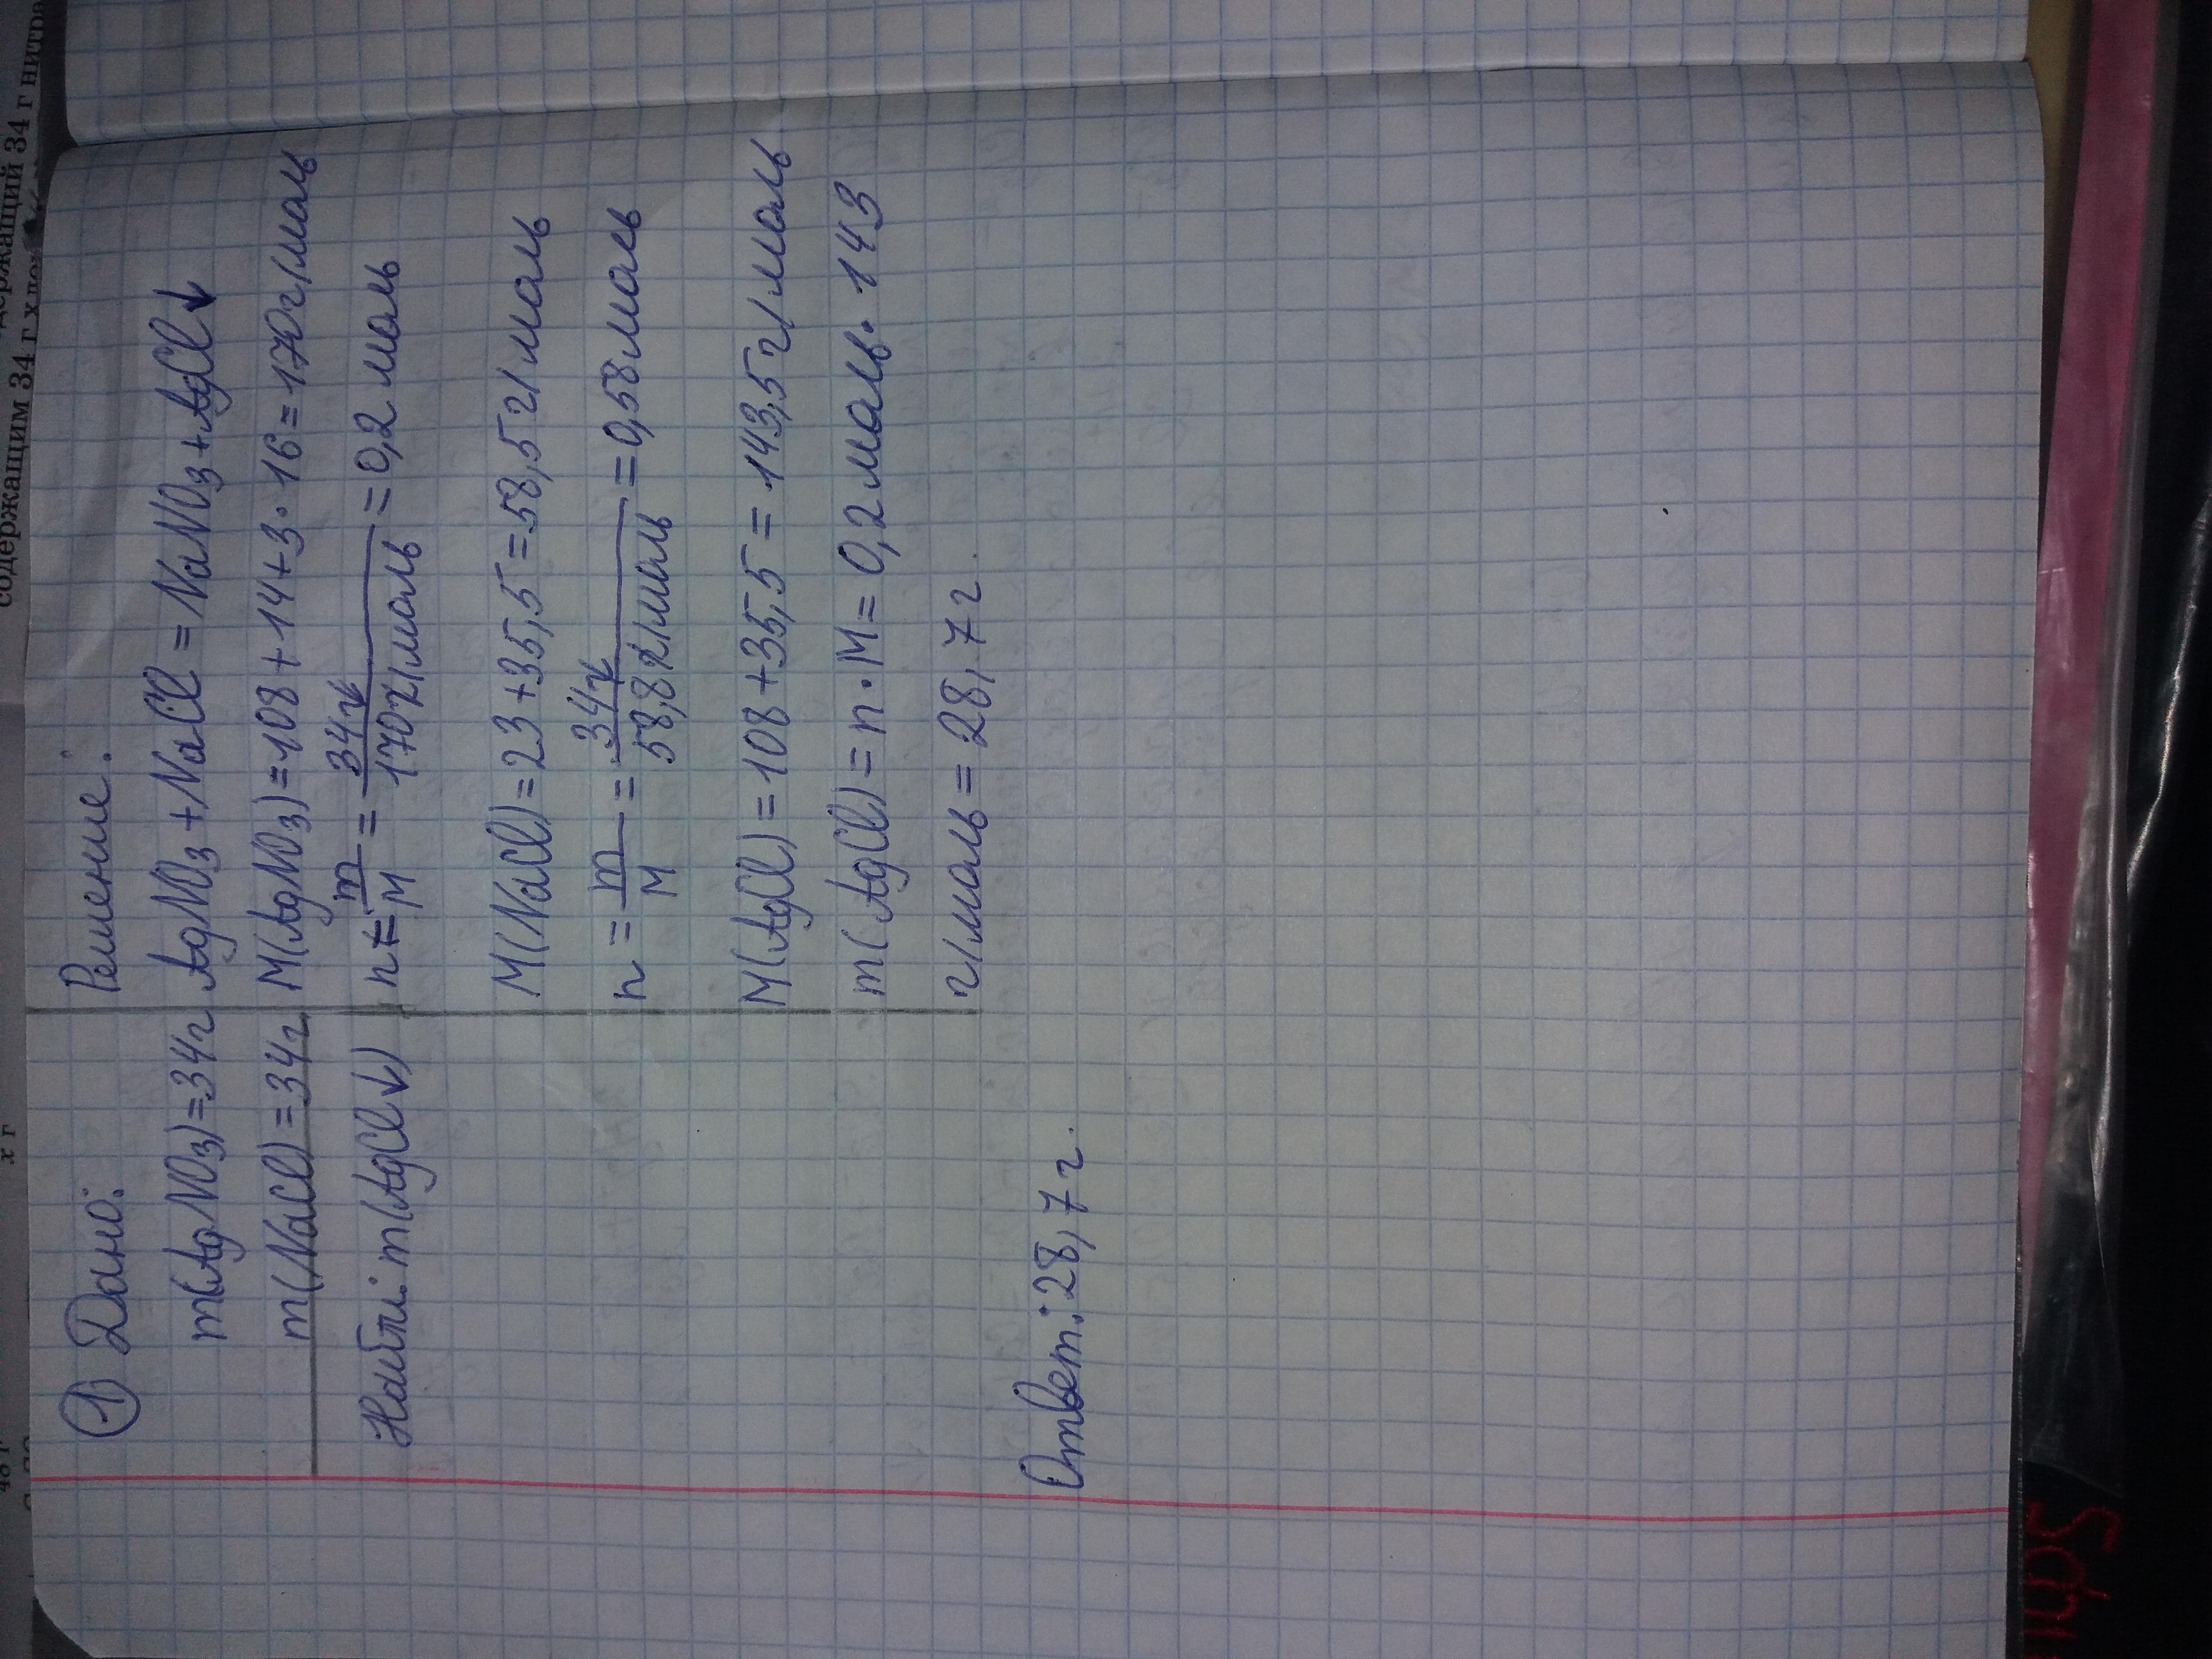 держащий 34 г нитра
содержащим 34 г х
х г
① Дано:
m(AgNO3)=34г
m(NaCl)=34г
Найти: m(AgCl↓)
Решение:
AgNO3+NaCl=NaNO3+AgCl↓
M(AgNO3)=108+14+3·16=170г/моль
n=m/M=34г/170г/моль=0,2 моль
M(NaCl)=23+35,5=58,5г/моль
n=m/M=34г/58,8г/моль=0,58моль
M(AgCl)=108+35,5=143,5г/моль
m(AgCl)=n·M=0,2моль·143
г/моль=28,7г.
Ответ: 28,7г.